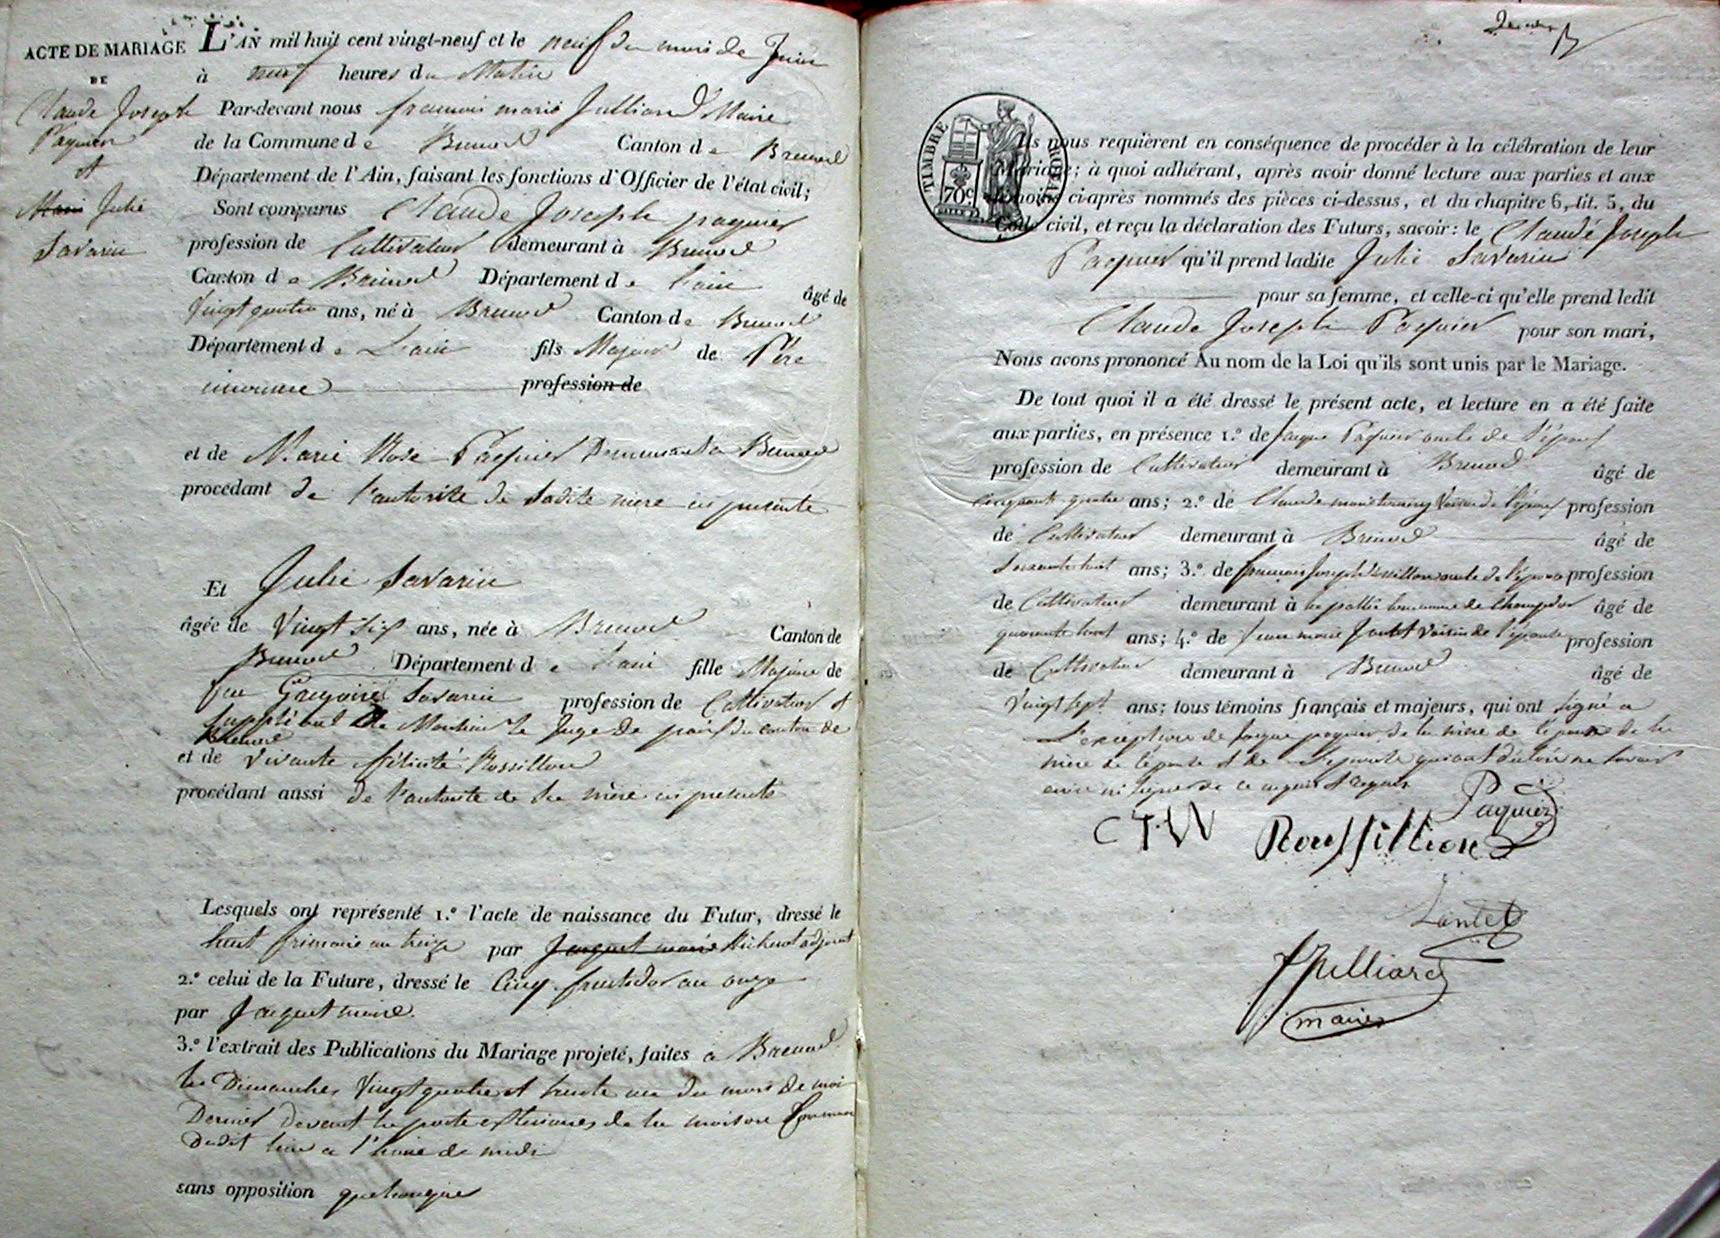 ACTE DE MARIAGE
DE
Claude Joseph
Paquier
et
Marie Julie
Savarin
L'AN mil huit cent vingt-neuf et le neuf du mois de Juin
à neuf heures du Matin
Par-devant nous françois marie Julliard Maire
de la Commune de Brenod Canton de Brenod
Département de l'Ain, faisant les fonctions d'Officier de l'état civil;
Sont comparus Claude Joseph paquier
profession de Cultivateur demeurant à Brenod
Canton de Brenod Département de l'ain âgé de
Vingt quatre ans, né à Brenod Canton de Brenod
Département de L'ain fils Majeur de Père
inconnu profession de
et de Marie Rose Paquier Demeurant a Brenod
procédant de l'autorité de Sadite mere ici presente
Et Julie Savarin
âgée de Vingt Six ans, née à Brenod Canton de
Brenod Département de l'ain fille Majeure de
feu Gregoire Savarin profession de Cultivateur et
Suppléant de Monsieur le Juge de paix du canton de
Brenod
et de Vivante félicité Rossillon
procédant aussi de l'autorité de Sa mère ici presente
Lesquels ont représenté 1.º l'acte de naissance du Futur, dressé le
huit frimaire an treize par Jaquet maire Michust adjoint
2.º celui de la Future, dressé le Cinq fructidor an onze
par Jaquet maire.
3.º l'extrait des Publications du Mariage projeté, faites a Brenod
les Dimanches Vingt quatre et trente un du mois de mai
Dernier devant la porte exterieure de la maison Commune
Dudit lieu a l'heure de midi
sans opposition quelconque
TIMBRE ROYAL
70 c
Ils nous requièrent en conséquence de procéder à la célébration de leur
Mariage; à quoi adhérant, après avoir donné lecture aux parties et aux
témoins ci-après nommés des pièces ci-dessus, et du chapitre 6, tit. 5, du
Code civil, et reçu la déclaration des Futurs, savoir: le Claude Joseph
Paquier qu'il prend ladite Julie Savarin
pour sa femme, et celle-ci qu'elle prend ledit
Claude Joseph Paquier pour son mari,
Nous avons prononcé Au nom de la Loi qu'ils sont unis par le Mariage.
De tout quoi il a été dressé le présent acte, et lecture en a été faite
aux parties, en présence 1.º de Jaque Paquier oncle de l'époux
profession de Cultivateur demeurant à Brenod âgé de
Cinquante quatre ans; 2.º de Claude marie Voisin de l'époux profession
de Cultivateur demeurant à Brenod âgé de
Soixante huit ans; 3.º de françois Joseph Rossillon oncle de l'épouse profession
de Cultivateur demeurant à la pallie commune de Champdor âgé de
quarante huit ans; 4.º de Jean marie Jantet Voisin de l'épouse profession
de Cultivateur demeurant à Brenod âgé de
Vingt Sept ans; tous témoins français et majeurs, qui ont signé a
L'exception de Jaque paquier, de la mère de l'époux de la
mère de l'épouse et de l'épouse qui ont déclaré ne savoir
ecrire ni signer de ce requis
Paquier
CTW Roussillion
Jantet
Julliard
maire